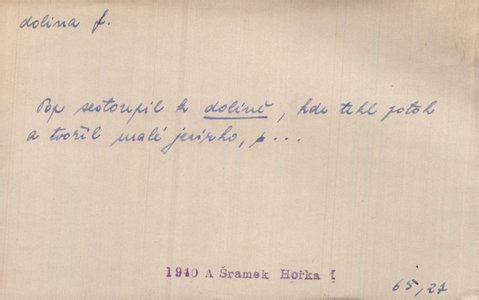 dolina f.
Pop sestoupil k dolině, kde tekl potok
a tvořil malé jezírko, p...
1940 A Šramek Hořka I
65,27